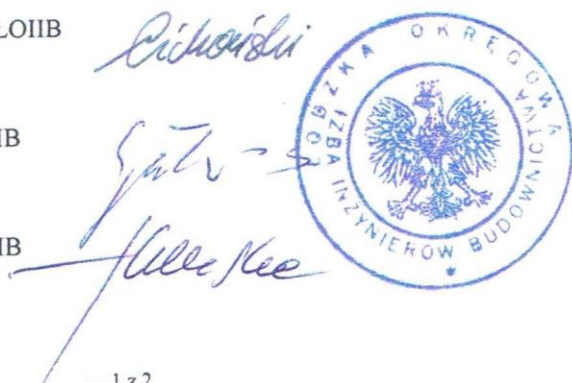 ŁOIIB
Cichoński
ŁÓDZKA OKRĘGOWA
IZBA INŻYNIERÓW BUDOWNICTWA
IB
IB
1 z 2